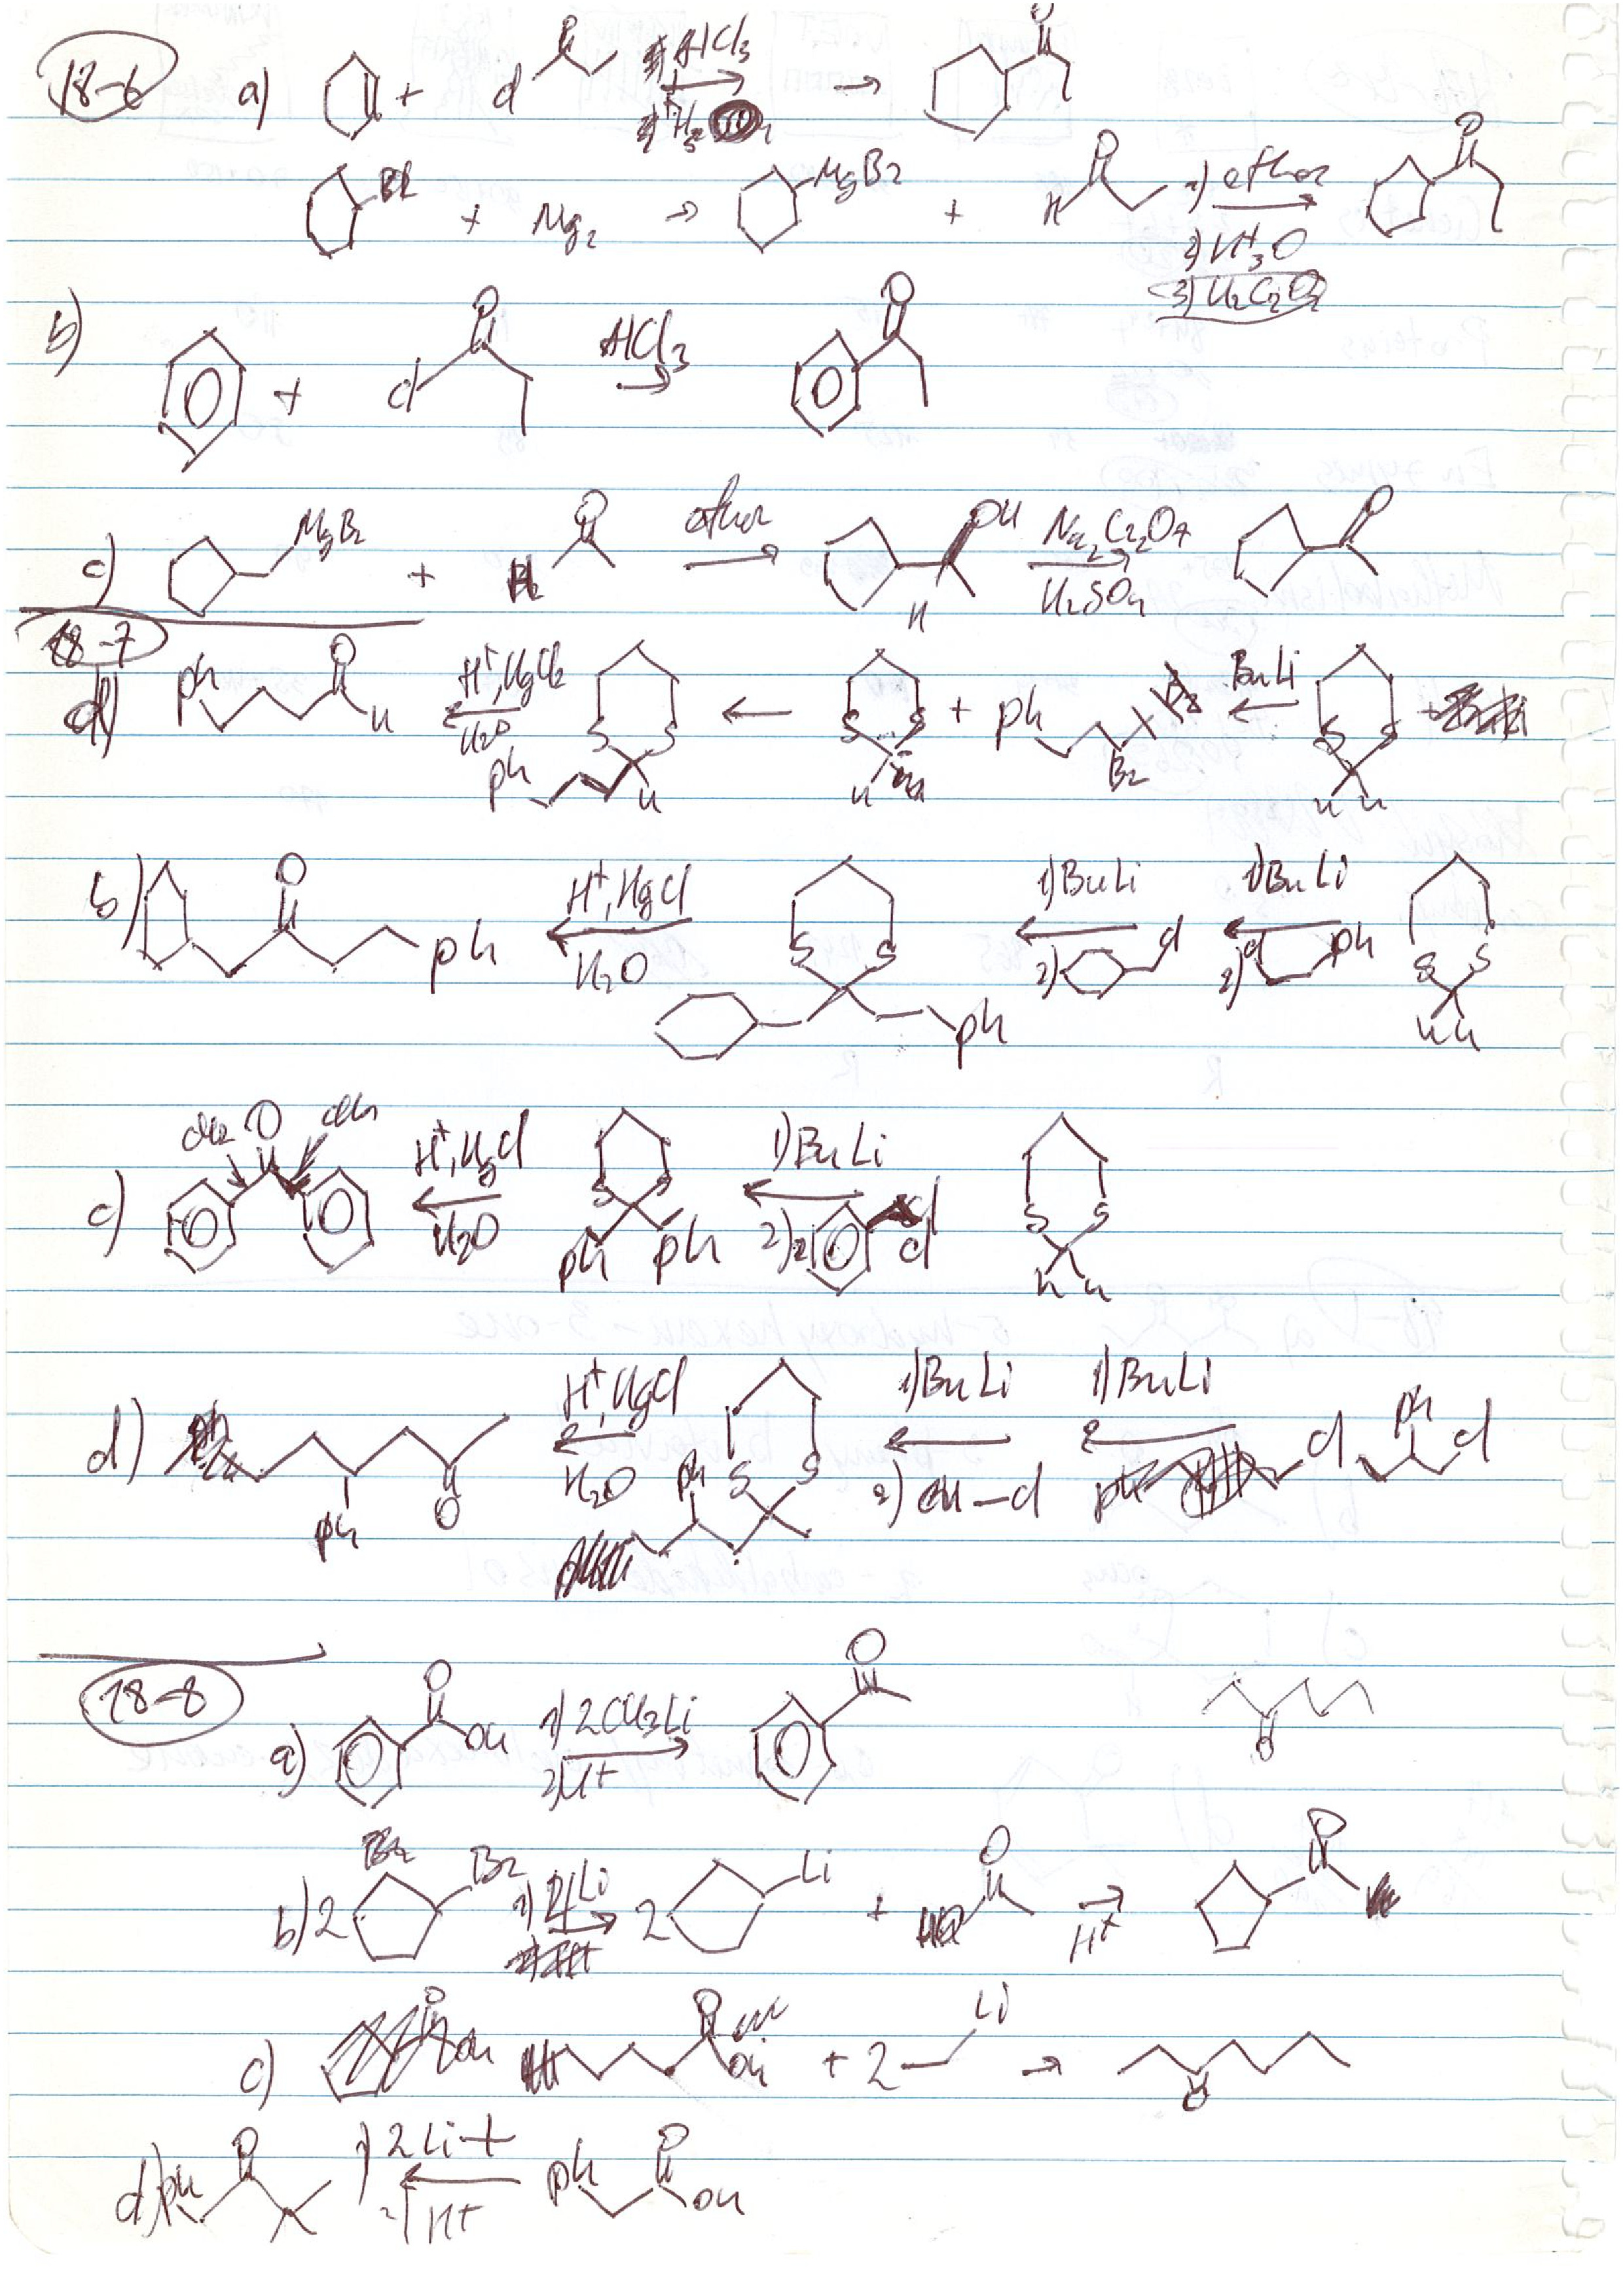 18-6 a) + Cl O AlCl3 → O
Br + Mg2 → MgBr + H O 1) ether O
2) H3+O
3) H2C2O7
b) + Cl O AlCl3 → O
c) MgBr + H O ether OH H Na2C2O7 H2SO4 O
18-7
a) ph O H H+, HgCl2 H2O S S ph H ← S S H + ph Br BuLi S S H H
b) O ph H+, HgCl H2O S S ph 1) BuLi 2) Cl 1) BuLi 2) Cl ph S S H H
c) O H+, HgCl H2O S S ph ph 1) BuLi 2) 2 Cl S S H H
d) ph O H+, HgCl H2O ph S S 1) BuLi 2) CH-Cl 1) BuLi Cl ph Cl
18-8
a) O OH 1) 2CH3Li 2) H+ O O
b) 2 Br 1) 4Li 2 Li + HO O → H+ O
c) O OH + 2 Li → O
d) ph O 1) 2Li 2) H+ ph O OH